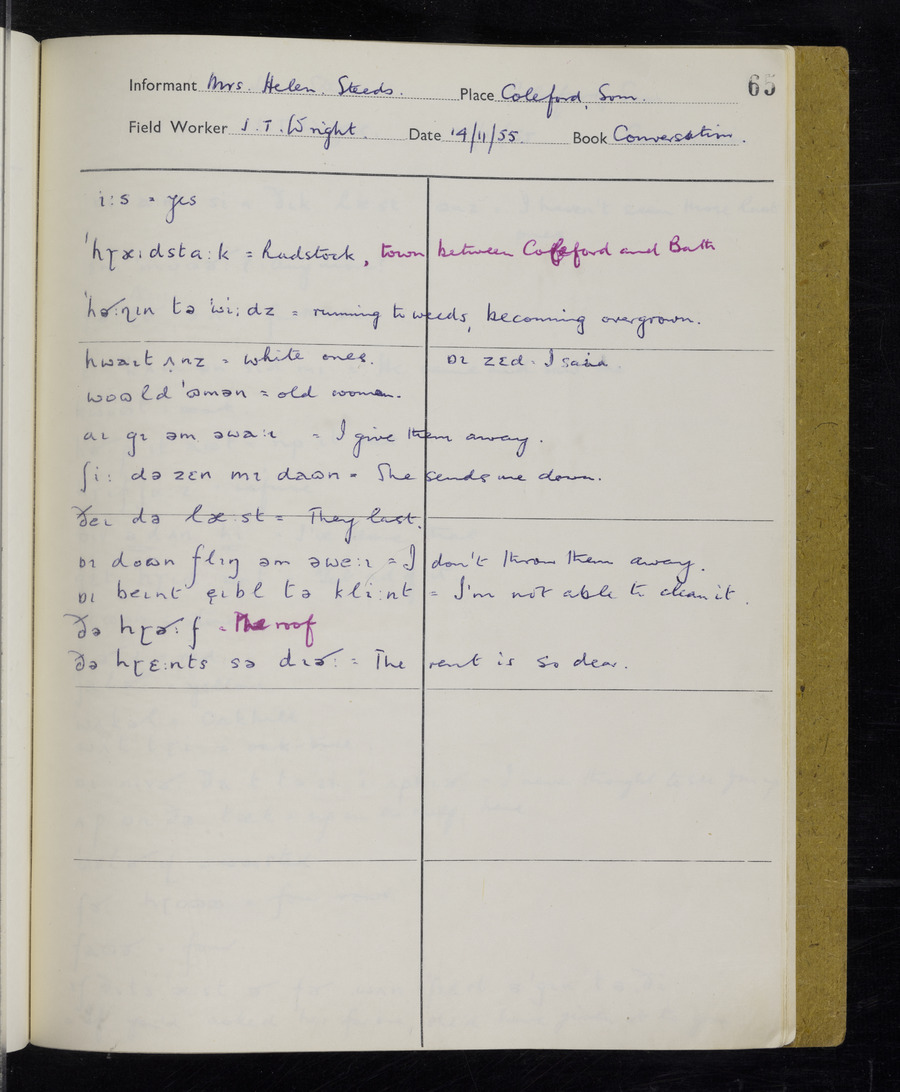 Informant Mrs. Helen. Steeds. Place Coleford, Som. 65
Field Worker J. T. Wright. Date 14/11/55. Book Conversation.
i:s = yes
'hɽæ:dsta:k = Radstock, town between Coleford and Bath
'hɚ:ɳɪn tə 'wi:dz = running to weeds, becoming overgrown.
hwaɪt ʌnz = white ones. ɒɪ zɛd = I said
wɒʊld 'ʊmən = old woman.
aɪ gɪ əm əwa:ɪ = I give them away.
ʃi: də zɛn mɪ daʊn = She sends me down.
ðeɪ də læ:st = They last.
ɒɪ doʊn flɪŋ əm əwe:ɪ = I don't throw them away.
ɒɪ beɪnt ęɪbl tə kli:nt = I'm not able to clean it.
ðə hɽɚ:f = The roof
ðə hɽɛ:nts sə dɪɚ: = The rent is so dear.